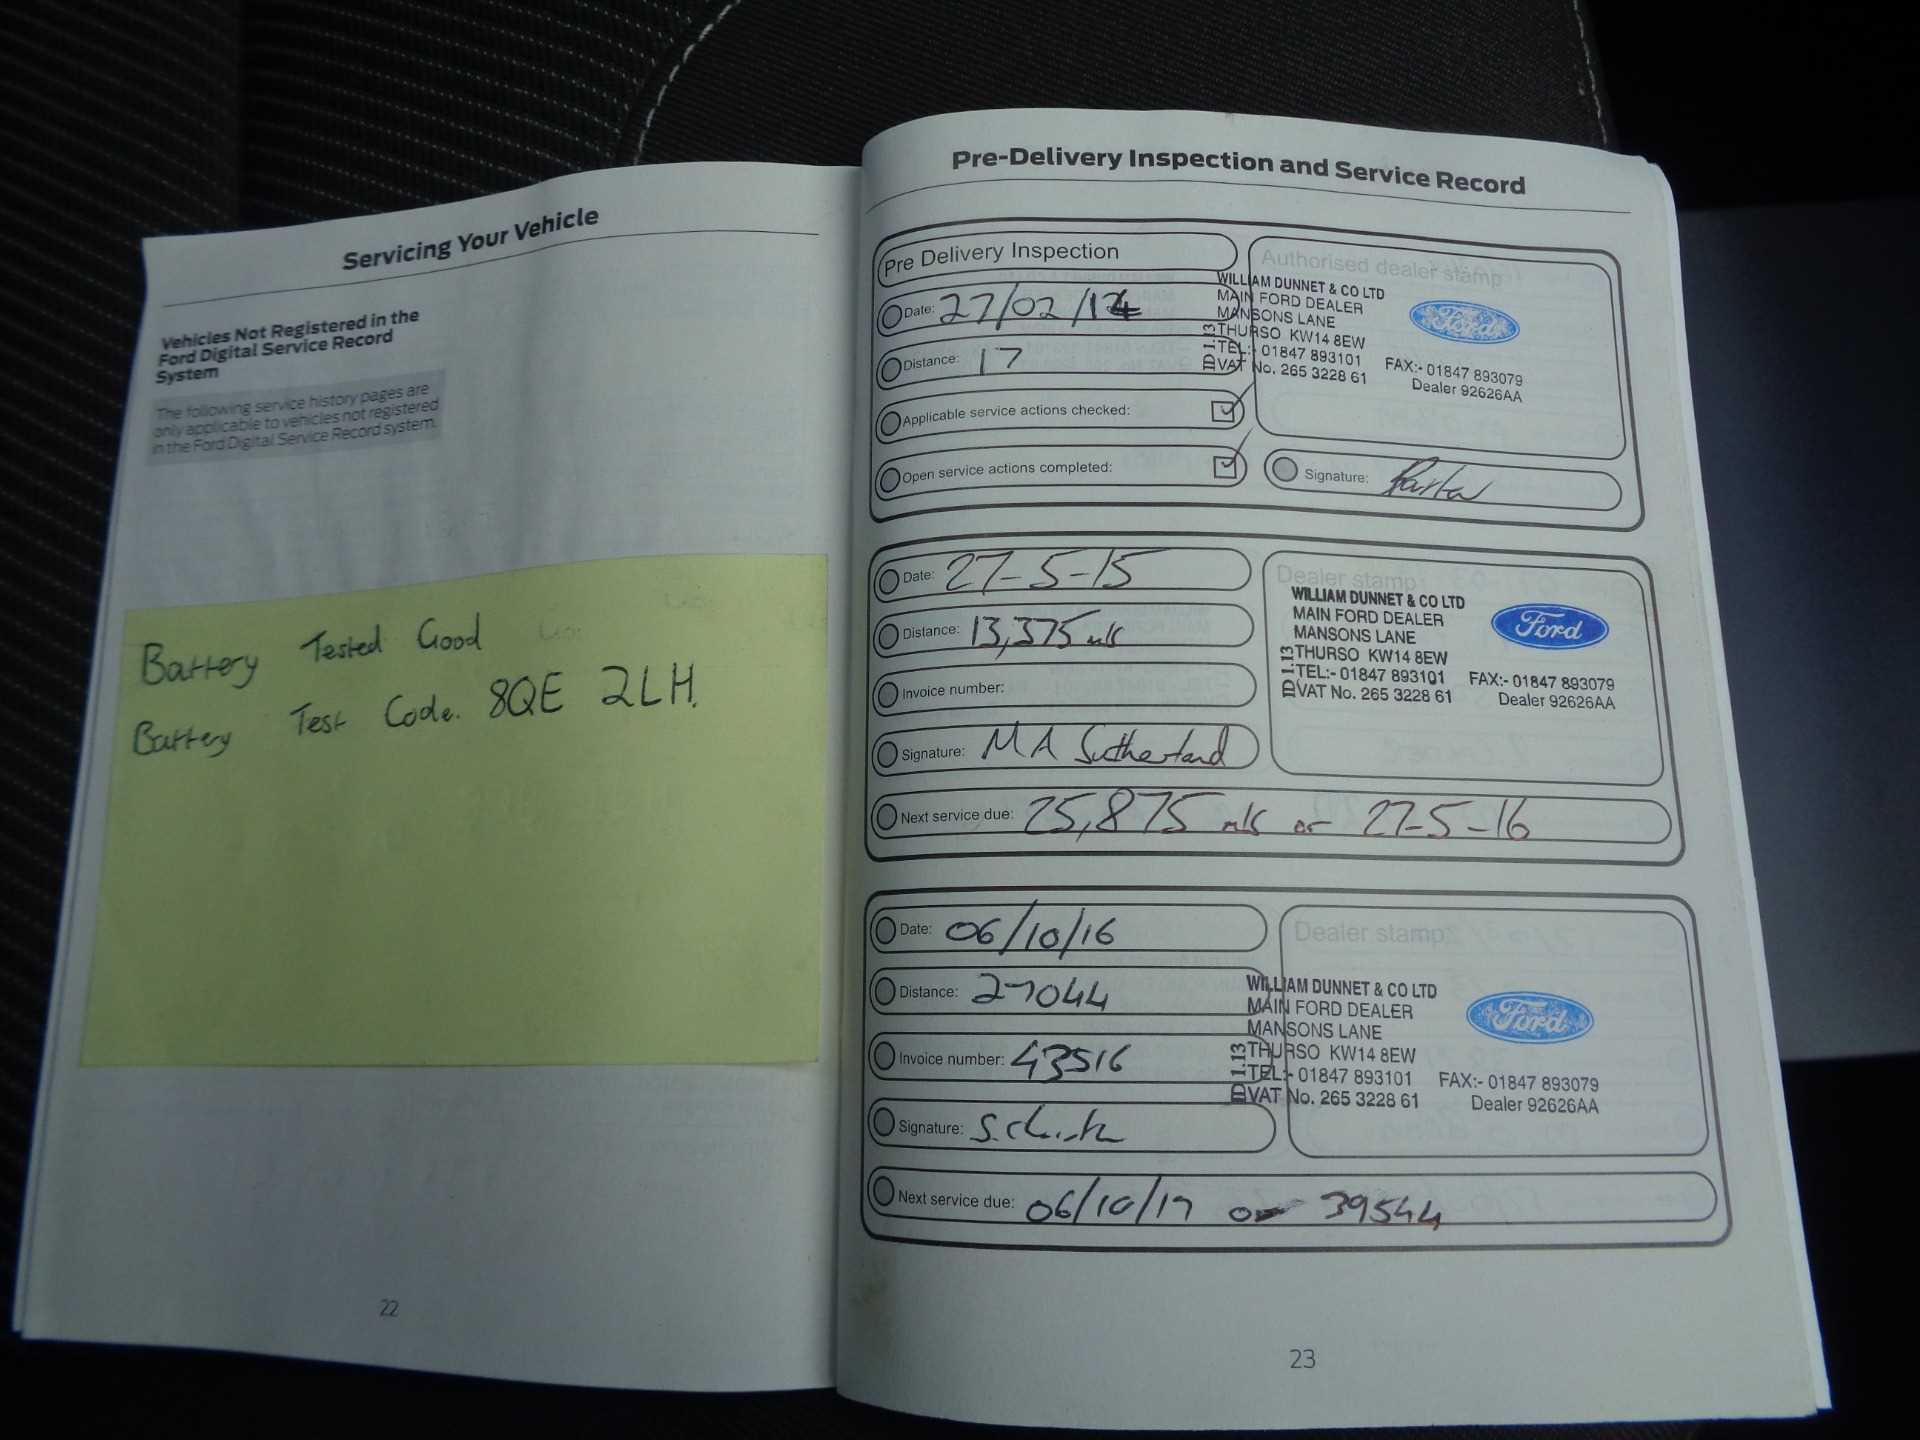 Servicing Your Vehicle
Vehicles Not Registered in the
Ford Digital Service Record
System
The following service history pages are
only applicable to vehicles not registered
in the Ford Digital Service Record system.
Battery Tested Good
Battery Test Code. 8QE 2LH.
22
Pre-Delivery Inspection and Service Record
Pre Delivery Inspection
Date: 27/02/14
Distance: 17
Applicable service actions checked:
Open service actions completed:
Authorised dealer stamp
WILLIAM DUNNET & CO LTD
MAIN FORD DEALER
MANSONS LANE
THURSO KW14 8EW
TEL:- 01847 893101 FAX:- 01847 893079
VAT No. 265 3228 61 Dealer 92626AA
ID 1.13
Ford
Signature:
Date: 27-5-15
Distance: 13,375 mls
Invoice number:
Signature: M A Sutherland
Next service due: 25,875 mls or 27-5-16
Dealer stamp
WILLIAM DUNNET & CO LTD
MAIN FORD DEALER
MANSONS LANE
THURSO KW14 8EW
TEL:- 01847 893101 FAX:- 01847 893079
VAT No. 265 3228 61 Dealer 92626AA
ID 1.13
Ford
Date: 06/10/16
Distance: 27044
Invoice number: 43516
Signature:
Next service due: 06/10/17 or 39544
Dealer stamp
WILLIAM DUNNET & CO LTD
MAIN FORD DEALER
MANSONS LANE
THURSO KW14 8EW
TEL:- 01847 893101 FAX:- 01847 893079
VAT No. 265 3228 61 Dealer 92626AA
ID 1.13
Ford
23